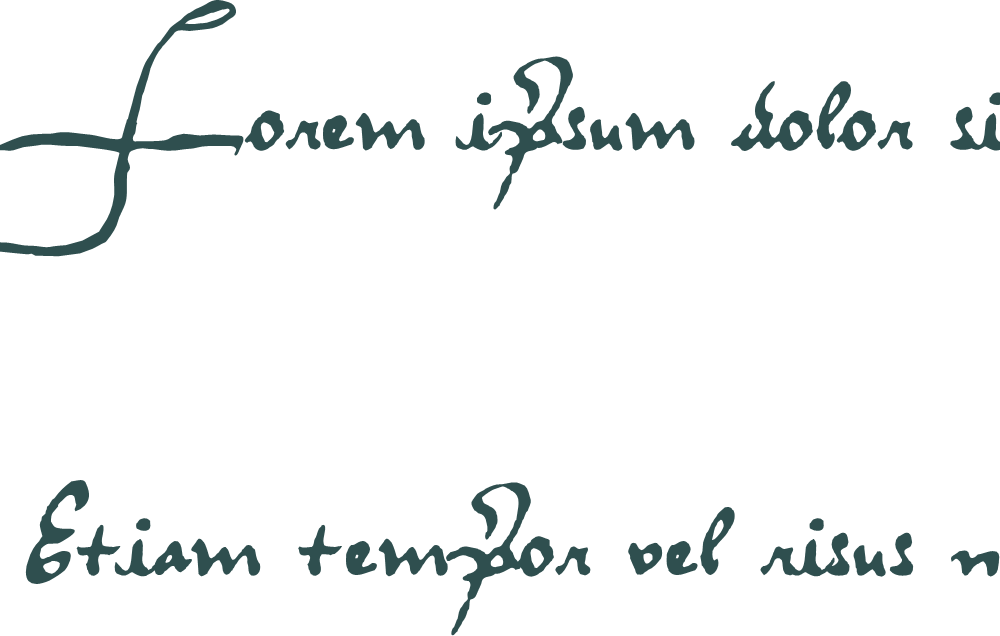 Lorem ipsum dolor si
Etiam tempor vel risus n